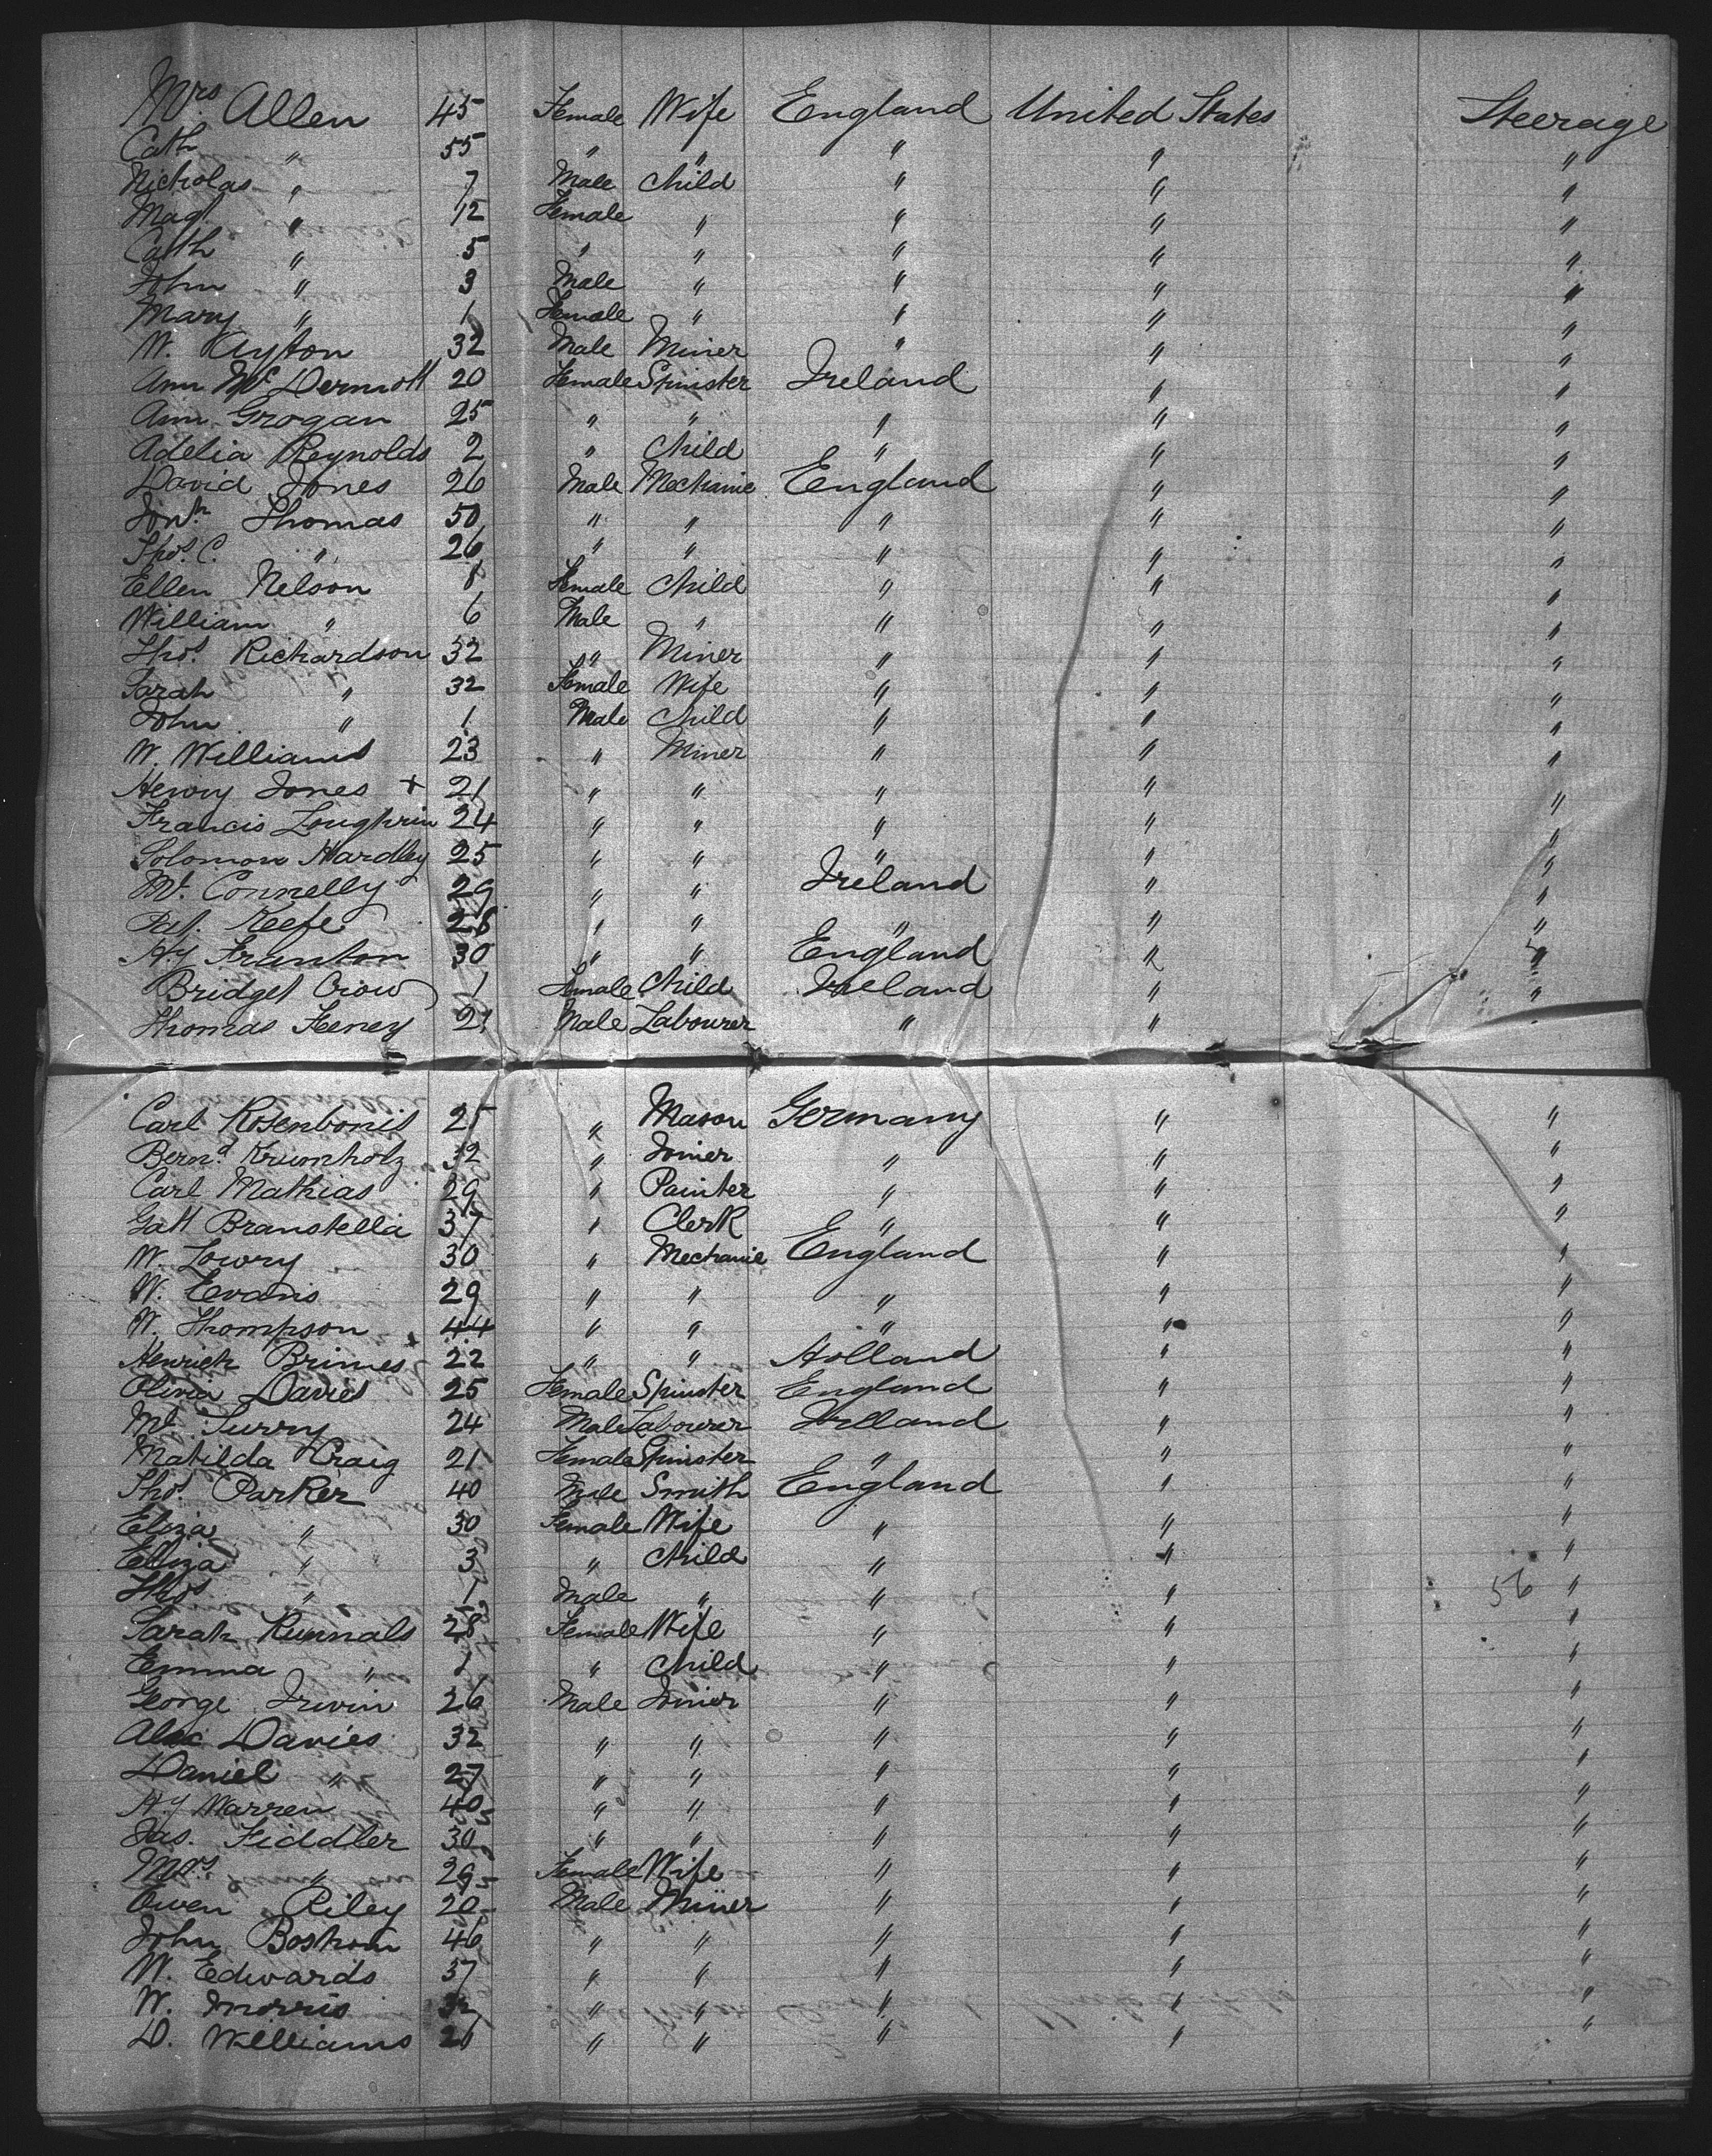 Mrs Allen 45 Female Wife England United States Steerage
Cath " 55 " " " " "
Nicholas " 7 Male Child " " "
Magt " 12 Female " " " "
Cath " 5 " " " " "
John " 3 Male " " " "
Mary " 1 Female " " " "
W. Ayton 32 Male Miner " " "
Ann McDermott 20 Female Spinister Ireland " "
Ann Grogan 25 " " " " "
Adelia Reynolds 2 " Child " " "
David Jones 26 Male Mechanic England " "
Jonn Thomas 50 " " " " "
Thos. C. " 26 " " " " "
Ellen Nelson 8 Female Child " " "
William " 6 Male " " " "
Thos. Richardson 32 " Miner " " "
Sarah " 32 Female Wife " " "
John " 1 Male Child " " "
W. Williams 23 " Miner " " "
Henry Jones + 21 " " " " "
Francis Loughrin 24 " " " " "
Solomon Hardley 25 " " " " "
Mt. Connelly 29 " " Ireland " "
Pat. Keefe 28 " " " " "
Hy Franton 30 " " England " "
Bridget Crow 1 Female Child Ireland " "
Thomas Feeney 21 Male Labourer " " "
Carl Rosenbonis 25 " Mason Germany " "
Bernd Krumholz 32 " Joiner " " "
Carl Mathias 29 " Painter " " "
Branstella 37 " Clerk " " "
W. Lowry 30 " Mechanic England " "
W. Evans 29 " " " " "
W. Thompson 44 " " " " "
Henrich Brimes + 22 " " Holland " "
Olivia Davies 25 Female Spinster England " "
Mt. Surry 24 Male Labourer Ireland " "
Matilda Craig 21 Female Spinister " " "
Thos. Parker 40 Male Smith England " "
Eliza " 30 Female Wife " " "
Eliza " 3 " Child " " "
Thos " 1 Male " " " 56 "
Sarah Runnals 28 Female Wife " " "
Emma " 1 " Child " " "
George Irwin 26 Male Joiner " " "
Alex Davies 32 " " " " "
Daniel " 27 " " " " "
Hy Warren 40 " " " " "
Jas. Fiddler 30 " " " " "
Mrs. " 29 Female Wife " " "
Owen Riley 20 Male Miner " " "
John Bostrom 46 " " " " "
W. Edwards 37 " " " " "
W. Morris 32 " " " " "
D. Williams 26 " " " " "